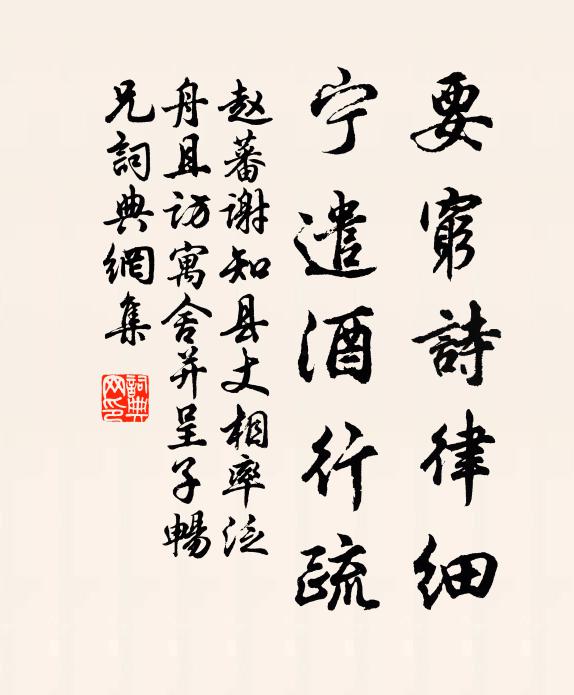 要窮詩律細
宁遣酒行疏
赵蕃谢知县丈相率泛
舟且访寓舍并呈子暢
兄詞典網集
詞典
网印